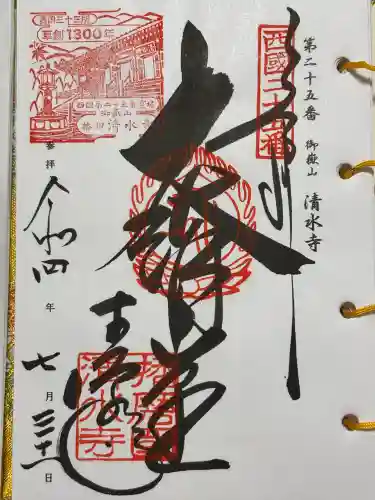 第二十五番 御嶽山 清水寺
西國二十五番
奉
大講堂
清水寺
播磨國清水寺
西国三十三所
草創1300年
西国第二十五番霊場
御嶽山
播州清水寺
参拝 令和四年七月三十一日